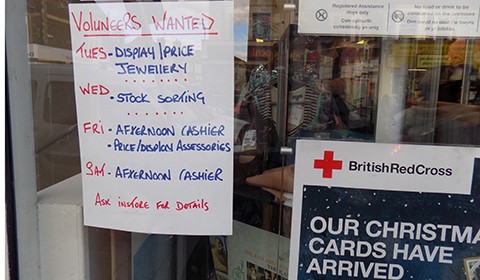 VOLUNEERS WANTED
TUES - DISPLAY/PRICE
JEWELLERY
WED - STOCK SORYING
FRI - AFYERNOON CASHIER
- PRICE/DISPLAY ASSESSORIES
SAY - AFYERNOON CASHIER
ASK INSYORE FOR DETAILS
Registered Assistance
dogs only
No food or drink to be
BritishRedCross
OUR CHRISTMA
CARDS HAVE
ARRIVED